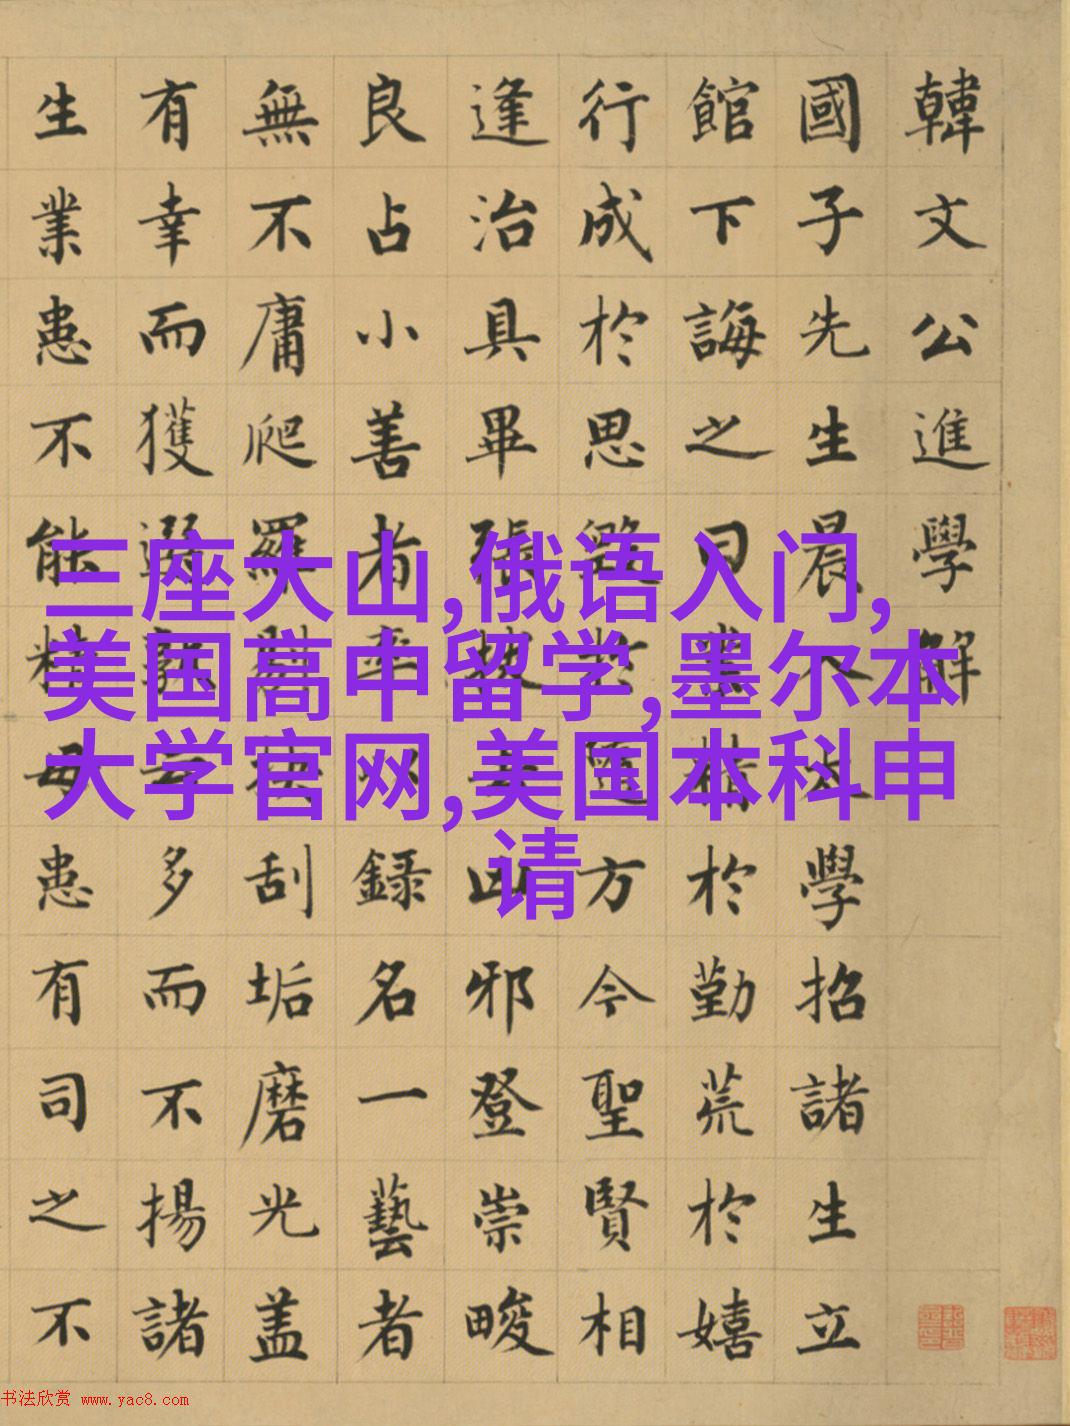 韓文公進學解
國子先生晨入太學招諸生立
館下誨之曰業精於勤荒於嬉
行成於思毀於隨方今聖賢相
逢治具畢張拔去凶邪登崇畯
良占小善者率以録名一藝者
無不庸爬羅剔抉刮垢磨光盖
有幸而獲選孰云多而不揚諸
生業患不能精毋患有司之不
三座大山,俄语入门,
美国高中留学,墨尔本
大学官网,美国本科申
请
书法欣赏 www.yac8.com